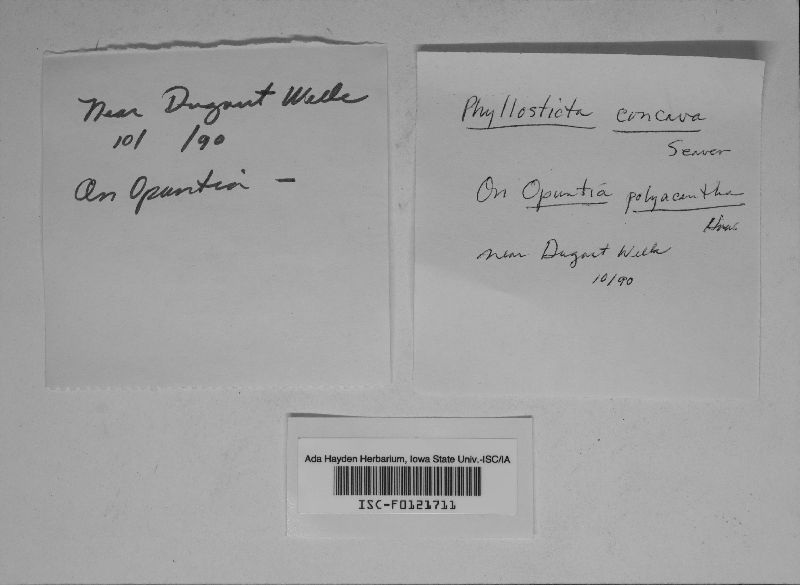 Near Dugout Wells
10/ /90
On Opuntia -
Phyllosticta concava
Seaver
On Opuntia polyacantha
Haw.
near Dugout Wells
10/90
Ada Hayden Herbarium, Iowa State Univ.-ISC/IA
ISC-F0121711